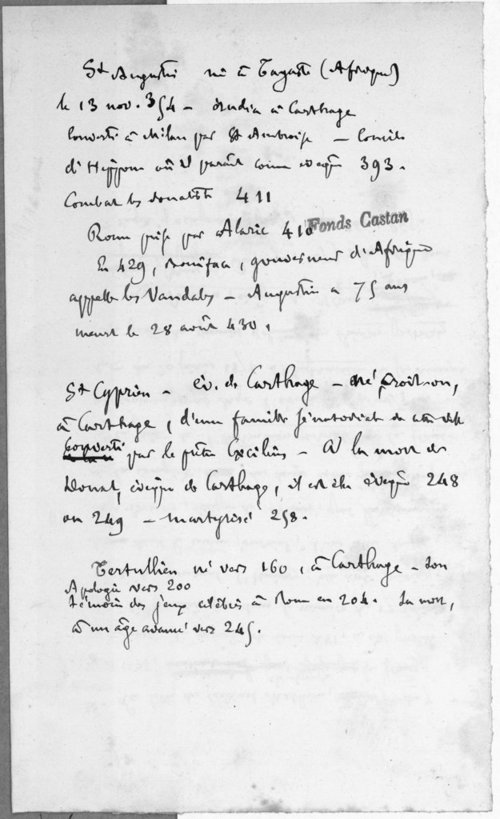 St Augustin né à Tagaste (Afrique)
le 13 nov. 354 – étudia à Carthage
converti à Milan par St Ambroise – Concile
d'Hippone où il parait comme evêque 393.
Combat les donatistes 411
Rome prise par Alaric 410
Fonds Castan
En 429, Boniface, gouverneur d'Afrique
appelle les Vandales – Augustin a 75 ans
meurt le 28 août 430.
St Cyprien – év. de Carthage – né, croit-on,
à Carthage, d'une famille sénatoriale de cette ville
converti par le prêtre Cæcilius – A la mort de
Donat, évêque de Carthage, il est élu évêque 248
ou 249 – martyrisé 258.
Tertullien né vers 160, à Carthage – Son
Apologie vers 200
témoin des jeux célébrés à Rome en 204. Sa mort,
à un âge avancé vers 245.